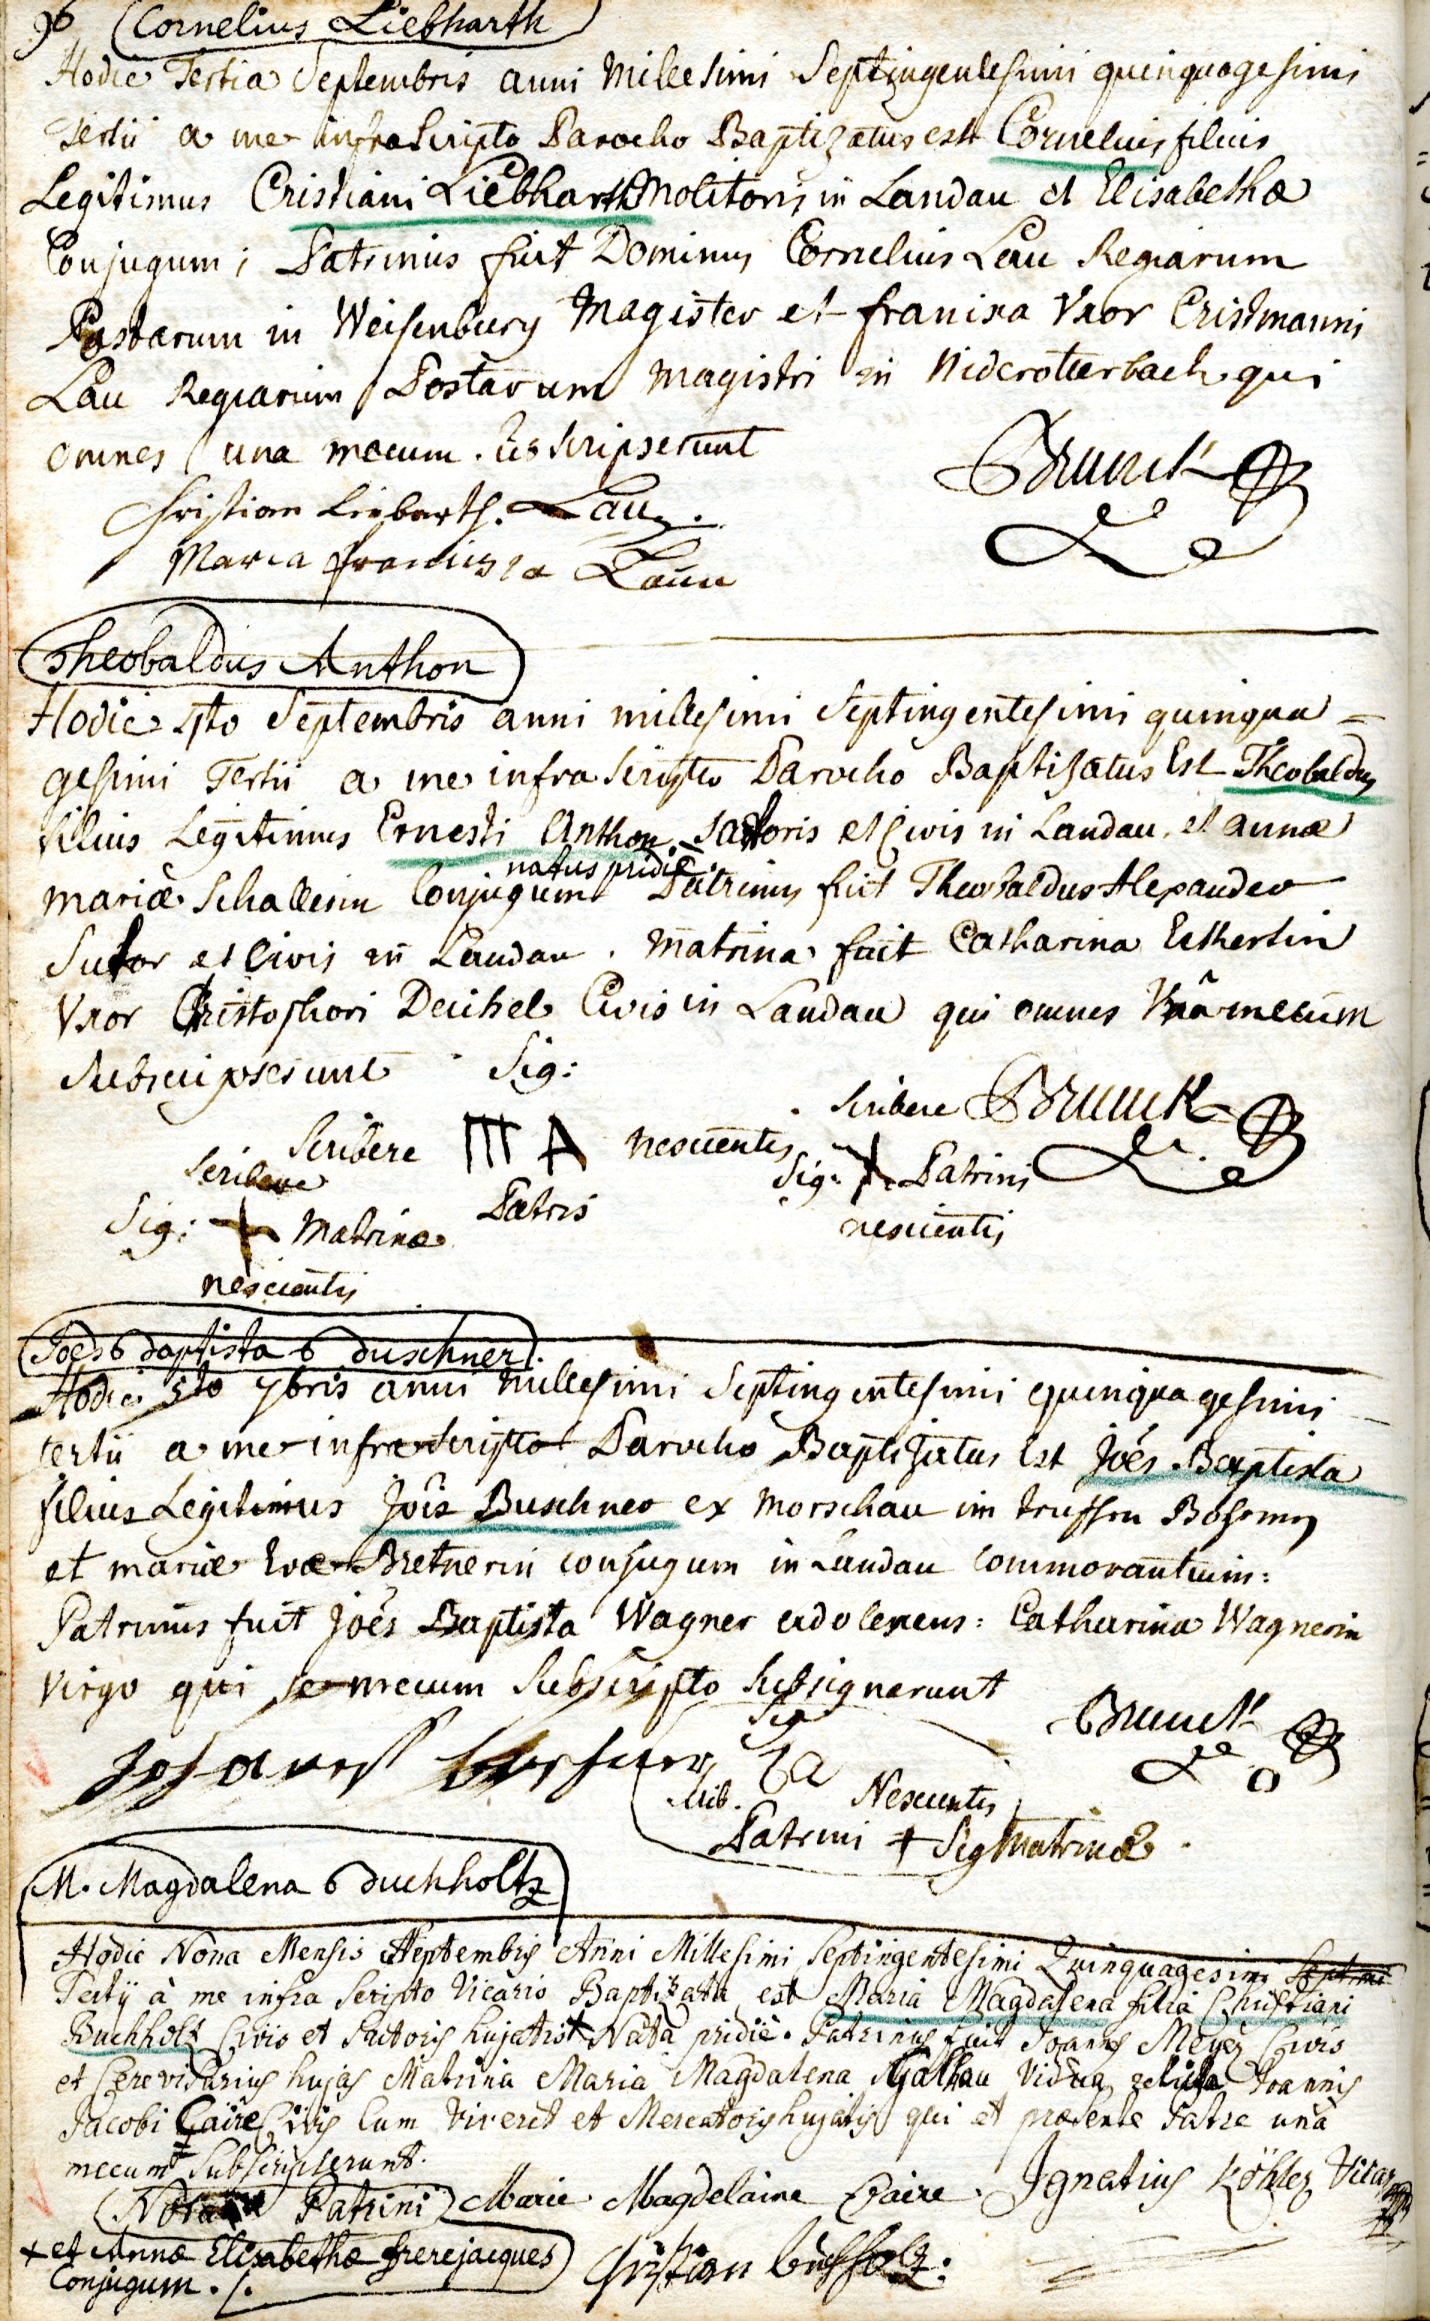 96 Cornelius Liebharth
Hodie Tertia Septembris anni Millesimi Septingentesimi quinquagesimi
Tertii a me infraScripto Parocho Baptizatus est Cornelius filius
Legitimus Cristiani Liebharth Molitoris in Landau et Elisabethæ
Conjugum; Patrinus fuit Dominus Cornelius Lau Regiarum
Postarum in Weisenburg Magister et francisca Uxor Cristmanni
Lau Regiarum Postarum Magistri in Niderotterbach qui
omnes una mecum subscripserunt
Christian Liebarth. Lau.
Brunck
Maria francisca Lauin
Theobaldus Anthon
Hodie 4to Septembris anni millesimi Septingentesimi quinqua=
gesimi Tertii a me infra Scripto Parocho Baptisatus Est Theobaldus
filius Legitimus Ernesti Anthon Sartoris et Civis in Landau et annæ
natus pridiè.
mariæ Schallerin Conjugum Patrinus fuit Theobaldus Alexander
Sutor et Civis in Landau. Matrina fuit Catharina Eckhertin
Uxor Christophori Deichel Civis in Landau qui omnes Unâ mecum
Subscripserunt Sig:
Scribere III A nescientis
Patris
scribere
Sig: + Matrinæ
nescientis
scribere Brunck
Sig: + Patrini
nescientis
Joes Baptista Buschner
Hodie 5to 7bris anni millesimi Septingentesimi quinquagesimi
tertii a me infrascripto Parocho Baptizatus Est Joês Baptista
filius Legitimus Jôis Buschner ex Morschau im
et mariæ Evæ Bretnerin conjugum in Landau commorantium:
Patrinus fuit Joês Baptista Wagner adolescens: Catharina Wagnerin
Virgo qui se mecum Subscripto subsignarunt
Sig
Brunck
Scrib. Nescientis
Patrini + Sig Matrinæ
M. Magdalena Buchholtz
Hodie Nona Mensis Septembris Anni Millesimi Septingentesimi Quinquagesimi
Tertij à me infra Scripto Vicario Baptizata est Maria Magdalena filia Christiani
Buchholtz Civis et Sartoris hujatis + Nata pridiè. Patrinus fuit Joannes Meyer Civis
et Cerevisiarius hujas Matrina Maria Magdalena Galhau Vidua relicta Joannis
Jacobi Caire Civis Cum Viveret et Mercatoris hujatis qui et præsente Patre unà
mecum Subscripserunt.
Nota Patrini Marie Magdelaine Caire. Ignatius Köhler Vicar
+ et Annæ Elisabethæ frerejacques
Conjugum ./.
Christian buchholz.